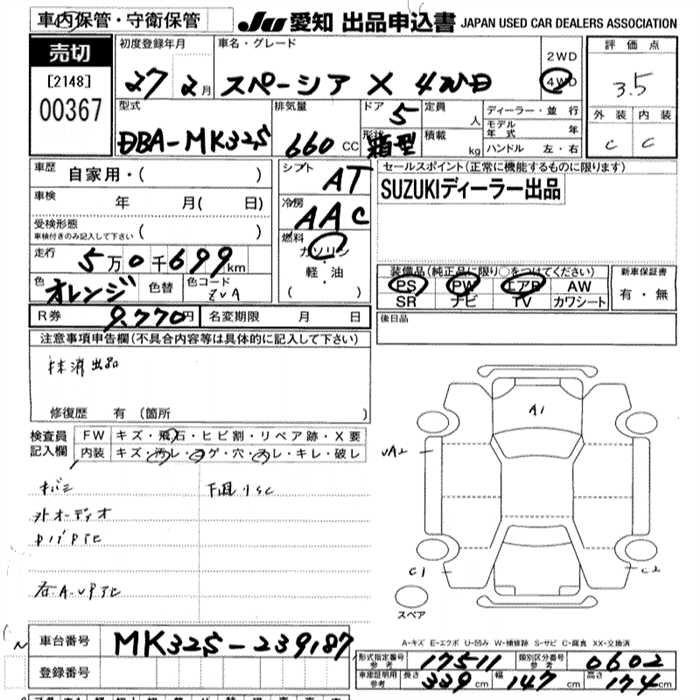 車内保管・守衛保管
JU 愛知 出品申込書 JAPAN USED CAR DEALERS ASSOCIATION
売切
[2148]
00367
初度登録年月
27 2月
車名・グレード
スペーシア X 4WD
2WD
4WD
評価点
3.5
外装 内装
C C
型式
DBA-MK32S
排気量
660 CC
ドア 5
形状 箱型
定員 人
積載 kg
ディーラー・並行
モデル年式 年
ハンドル 左・右
車歴 自家用・( )
車検 年 月( 日)
受検形態
車検付きのみ記入して下さい ( )
走行 5万0千699km
色 オレンジ 色替 色コード
R券 9,770円 名変期限 月 日
シフト AT
冷房 AAC
燃料 ガソリン
軽・油
( )
セールスポイント(正常に機能するものに限ります)
SUZUKIディーラー出品
装備品(純正品に限り○をつけてください)
PS PW エアB AW
SR ナビ TV カワシート
新車保証書
有・無
後日品
注意事項申告欄(不具合内容等は具体的に記入して下さい)
抹消出品
修復歴 有(箇所 )
検査員記入欄
FW キズ・飛石・ヒビ割・リペア跡・X要
内装 キズ・汚レ・コゲ・穴・スレ・キレ・破レ
下回りSC
外オーディオ
A1
C1
C2
スペア
A-キズ E-エクボ U-凹み W-補修跡 S-サビ C-腐食 XX-交換済
車台番号 MK32S-239187
登録番号
形式指定番号 参考 17511
類別区分番号 参考 0602
車庫証明用 参考 長さ 339cm 幅 147cm 高さ 174cm